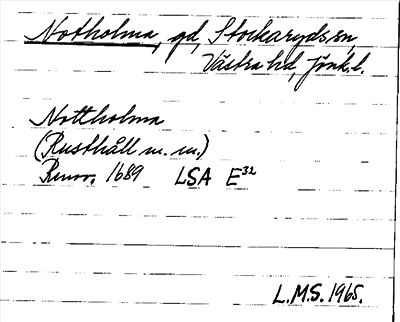 Notholma, gd, Stockaryds sn,
Västra hd, Jönk. l.
Nottholma
(Rusthåll m. m.)
Renov. 1689 LSA E32
L.M.S. 1965.